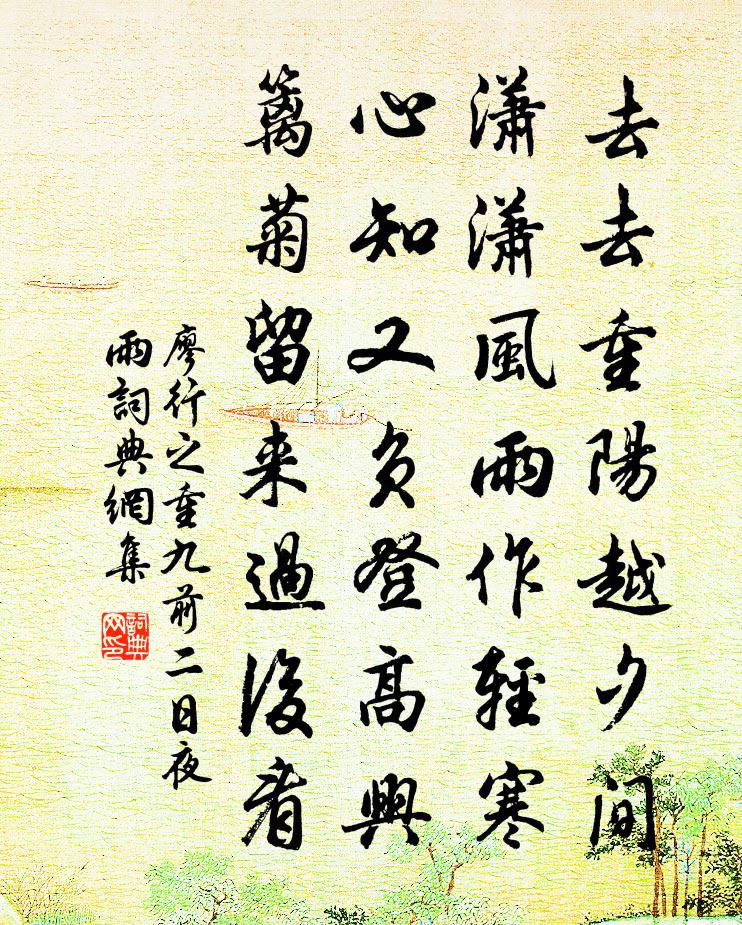 去去重陽越夕間
瀟瀟風雨作輕寒
心知又負登高興
籬菊留来過後看
廖行之重九前二日夜
雨詞典網集
詞典网印